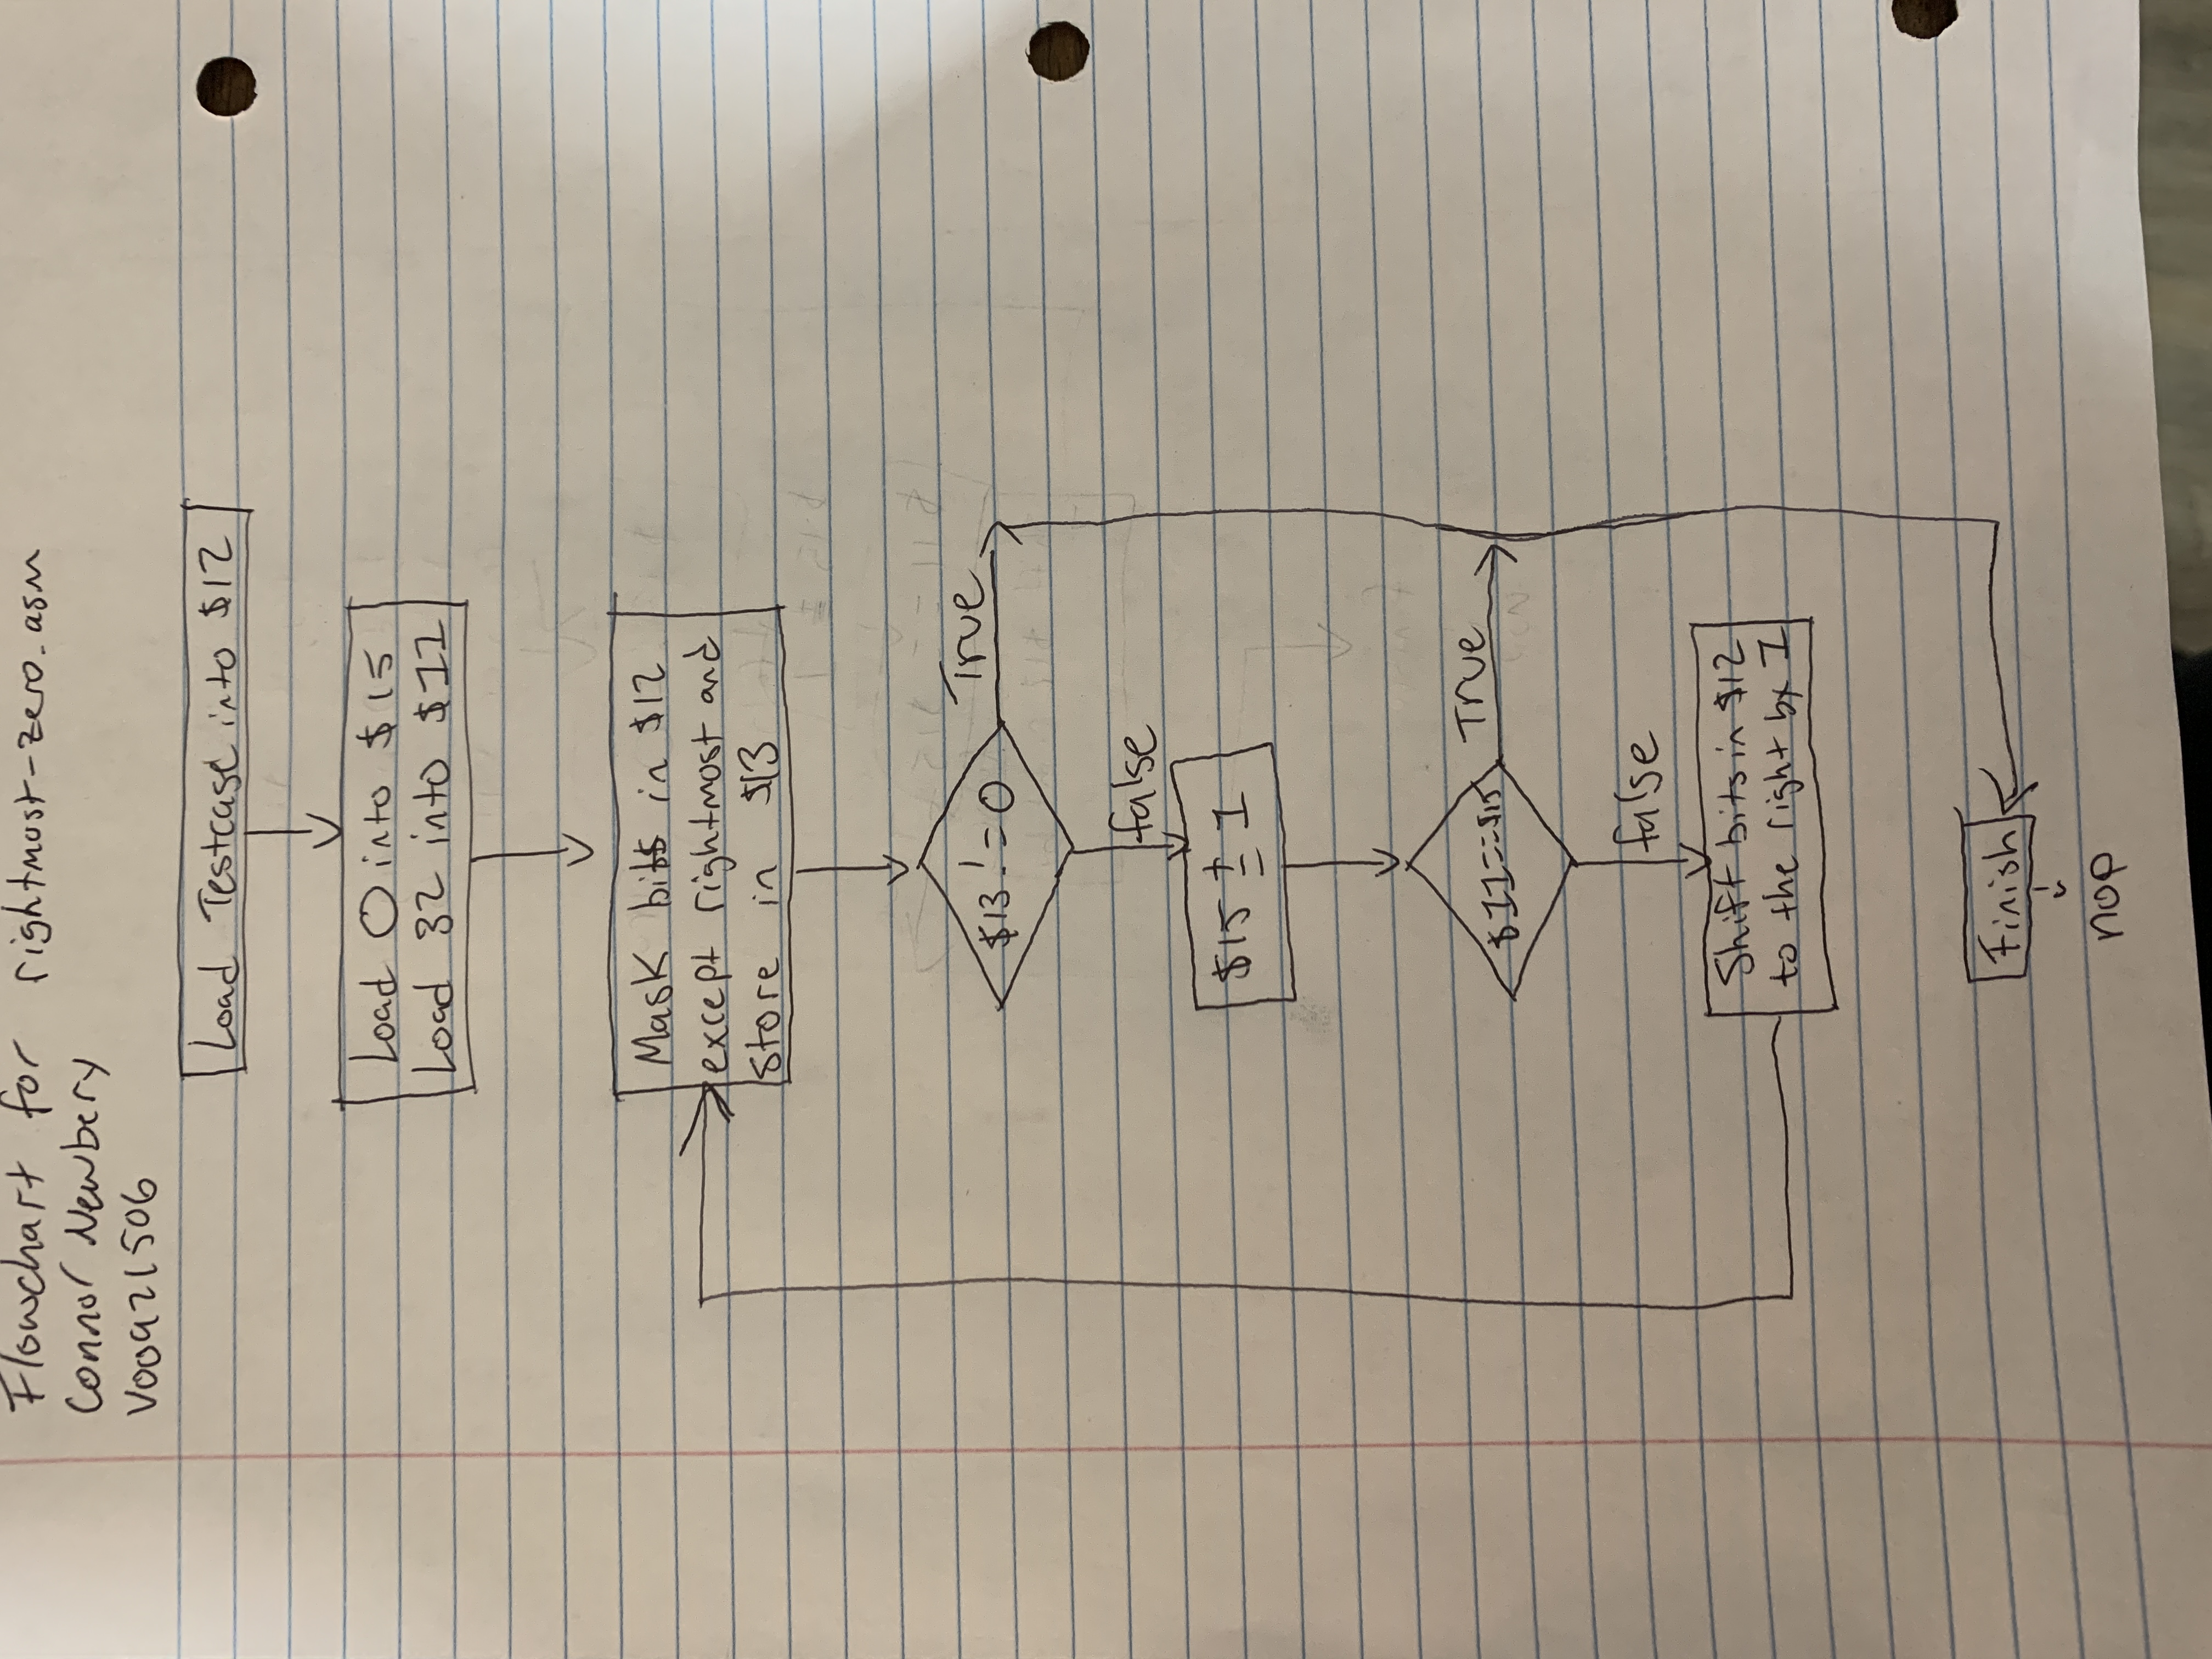 Flowchart for rightmost-zero.asm
Connor Newbery
V00921506
Load Testcase into $12
Load 0 into $15
Load 32 into $11
Mask bits in $12
except rightmost and
store in $13
$13 != 0
True
false
$15 += 1
$11==$15
True
false
Shift bits in $12
to the right by 1
Finish
nop